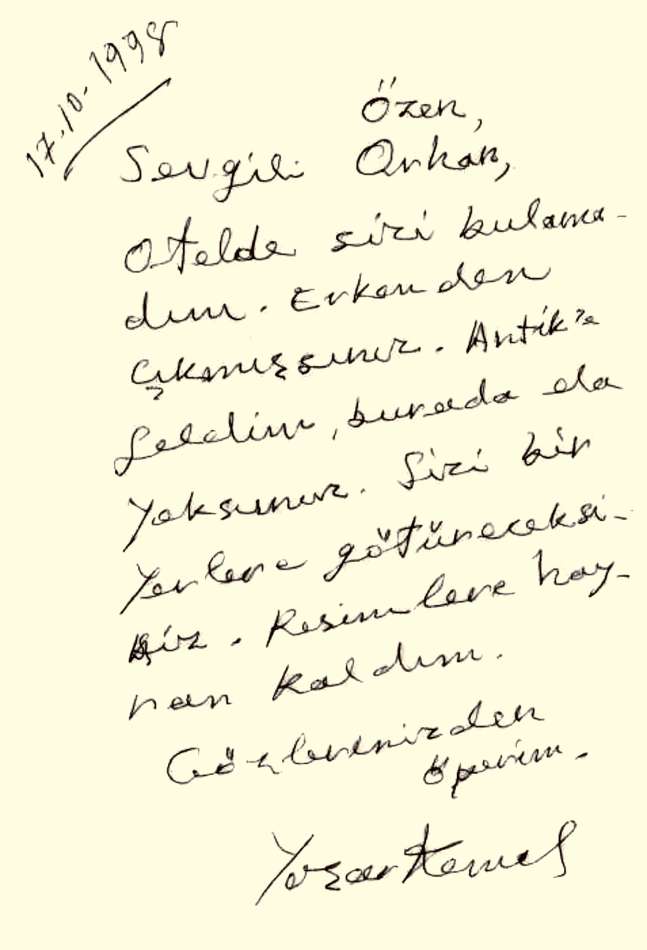 17.10.1998
Özen,
Sevgili Orhan,
Otelde sizi bulama-
dım. Erkenden
çıkmışsınız. Antik'e
geldim, burada da
yoksunuz. Sizi bir
yerlere götüreceksi-
niz. Resimlere hay-
ran kaldım.
Gözlerinizden
öperim.
Yaşar Kemal